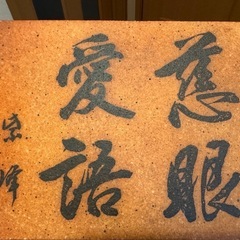 慈眼
愛語
峰